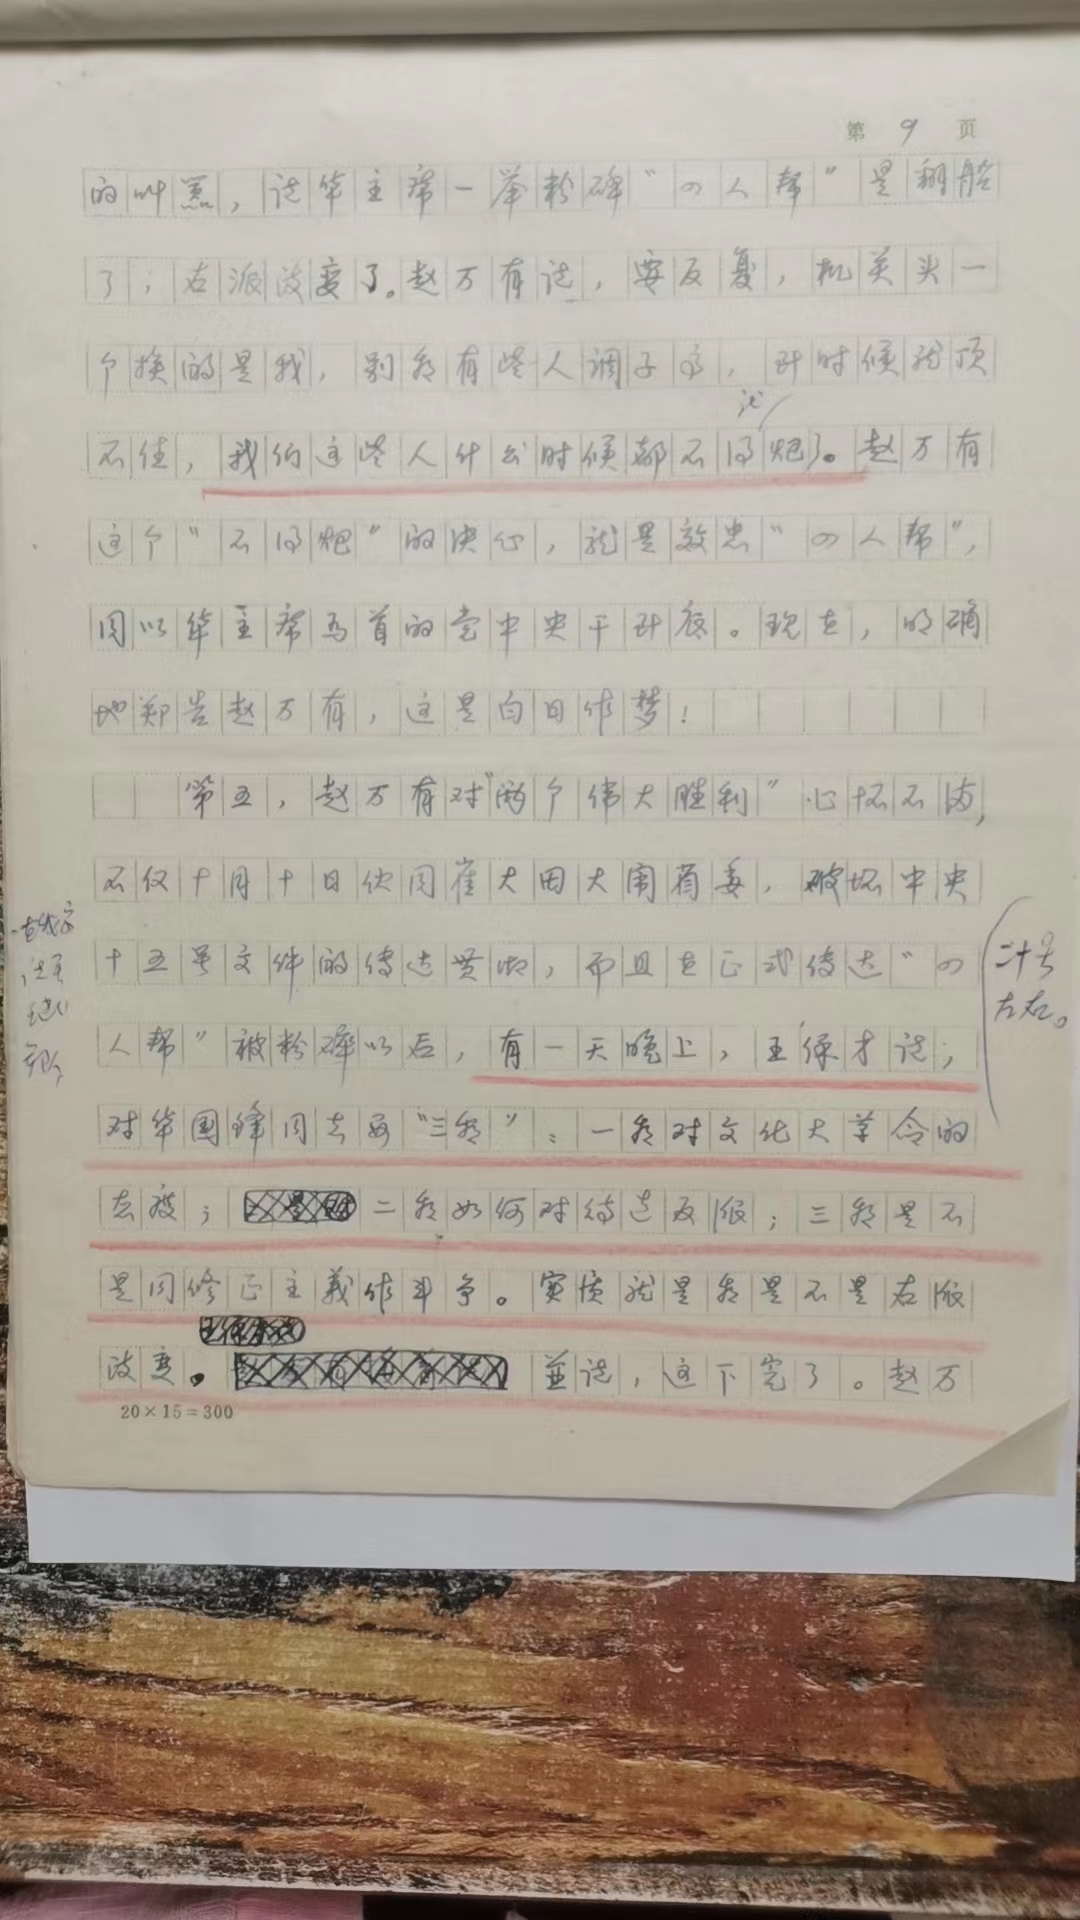 第 9 页
的叫嚣，说华主席一举粉碎“四人帮”是翻船
了；右派政变了。赵万有说，要反复，机关头一
个换的是我，别看有些人调子高，到时候就顶
不住，我们这些人什么时候都不得炮了。赵万有
这个“不得炮”的决心，就是效忠“四人帮”，
同以华主席为首的党中央干到底。现在，明确
地郑告赵万有，这是白日作梦！
第五，赵万有对“两个伟大胜利”心怀不满，
不仅十月十日伙同崔大田大闹省委，破坏中央
十五号文件的传达贯彻，而且在正式传达“四
二十号
左右。
人帮”被粉碎以后，有一天晚上，王保才说；
对华国锋同志要“三看”：一看对文化大革命的
态度；二看如何对待造反派；三看是不
是同修正主义作斗争。实质就是看是不是右派
政变。並说，这下完了。赵万
20×15=300